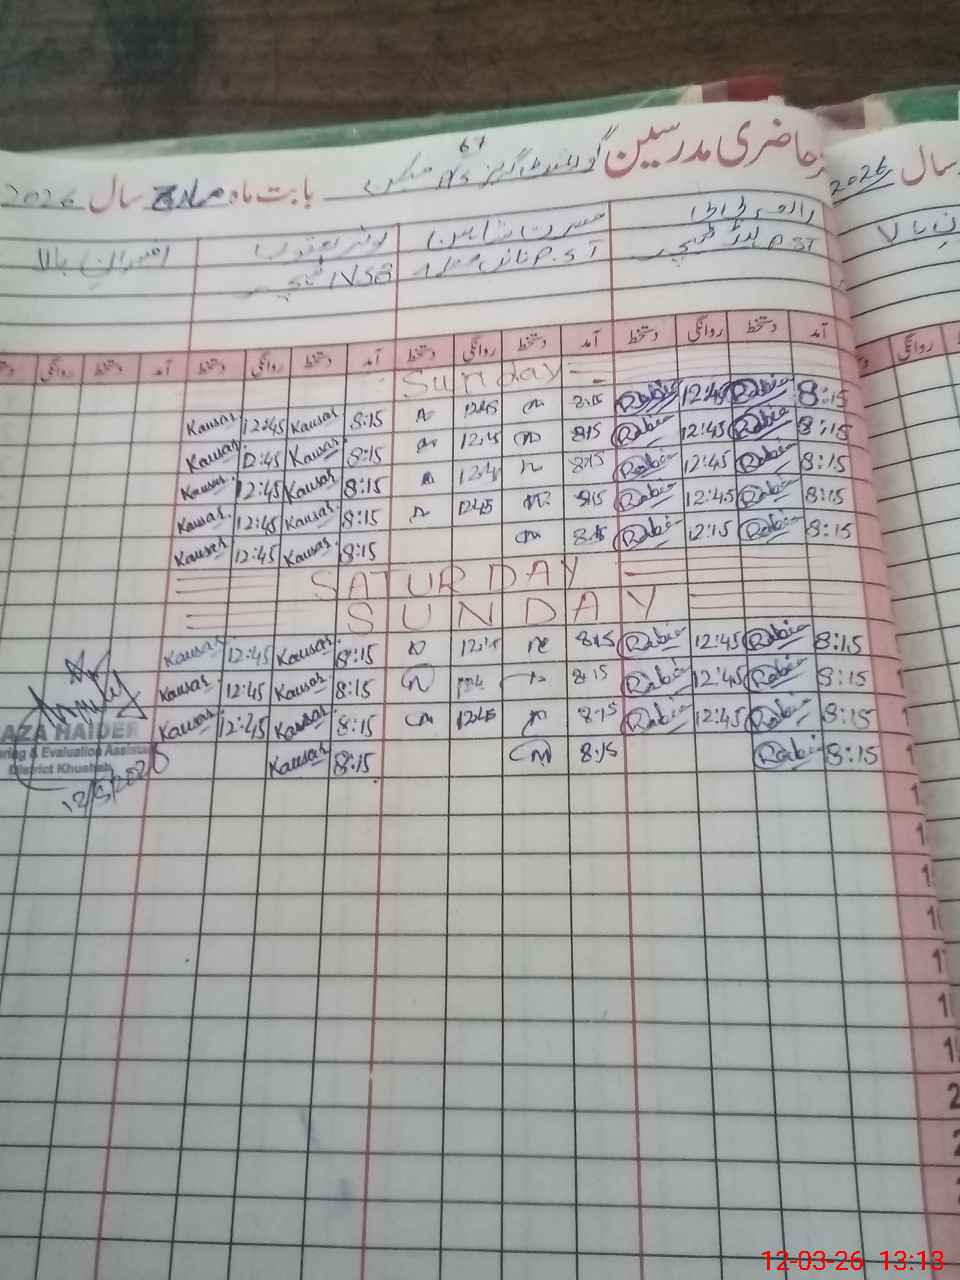 حاضری مدرسین گورنمنٹ گرلز P/S 67 بابت ماہ مارچ سال 2026
سال 2026
P.ST ہیڈ ٹیچر
مسرت شاہین
P.S.T
کوثر یعقوب
افسران بالا
آمد دستخط روانگی دستخط آمد دستخط روانگی دستخط آمد دستخط روانگی دستخط آمد دستخط روانگی
روانگی
Sunday
8:15 Rabia 12:45 Rabia 8:15 12:45 8:15 Kausar 12:45 Kausar
8:15 Rabia 12:45 Rabia 8:15 8:15 Kausar 12:45 Kausar
8:15 Rabia 12:45 Rabia 8:15 8:15 Kausar 12:45 Kausar
8:15 Rabia 12:45 Rabia 8:15 12:45 8:15 Kausar 12:45 Kausar
8:15 Rabia 12:15 Rabia 8:15 8:15 Kausar 12:45 Kausar
SATURDAY
SUNDAY
8:15 Rabia 12:45 Rabia 8:15 8:15 Kausar 12:45 Kausar
8:15 Rabia 12:45 Rabia 8:15 8:15 Kausar 12:45 Kausar
8:15 Rabia 12:45 Rabia 8:15 12:45 8:15 Kausar 12:45 Kausar
8:15 Rabia 8:15 8:15 Kausar
AZA HAIDER
& Evaluation Assistant
District Khushab
12-03-26 13:13